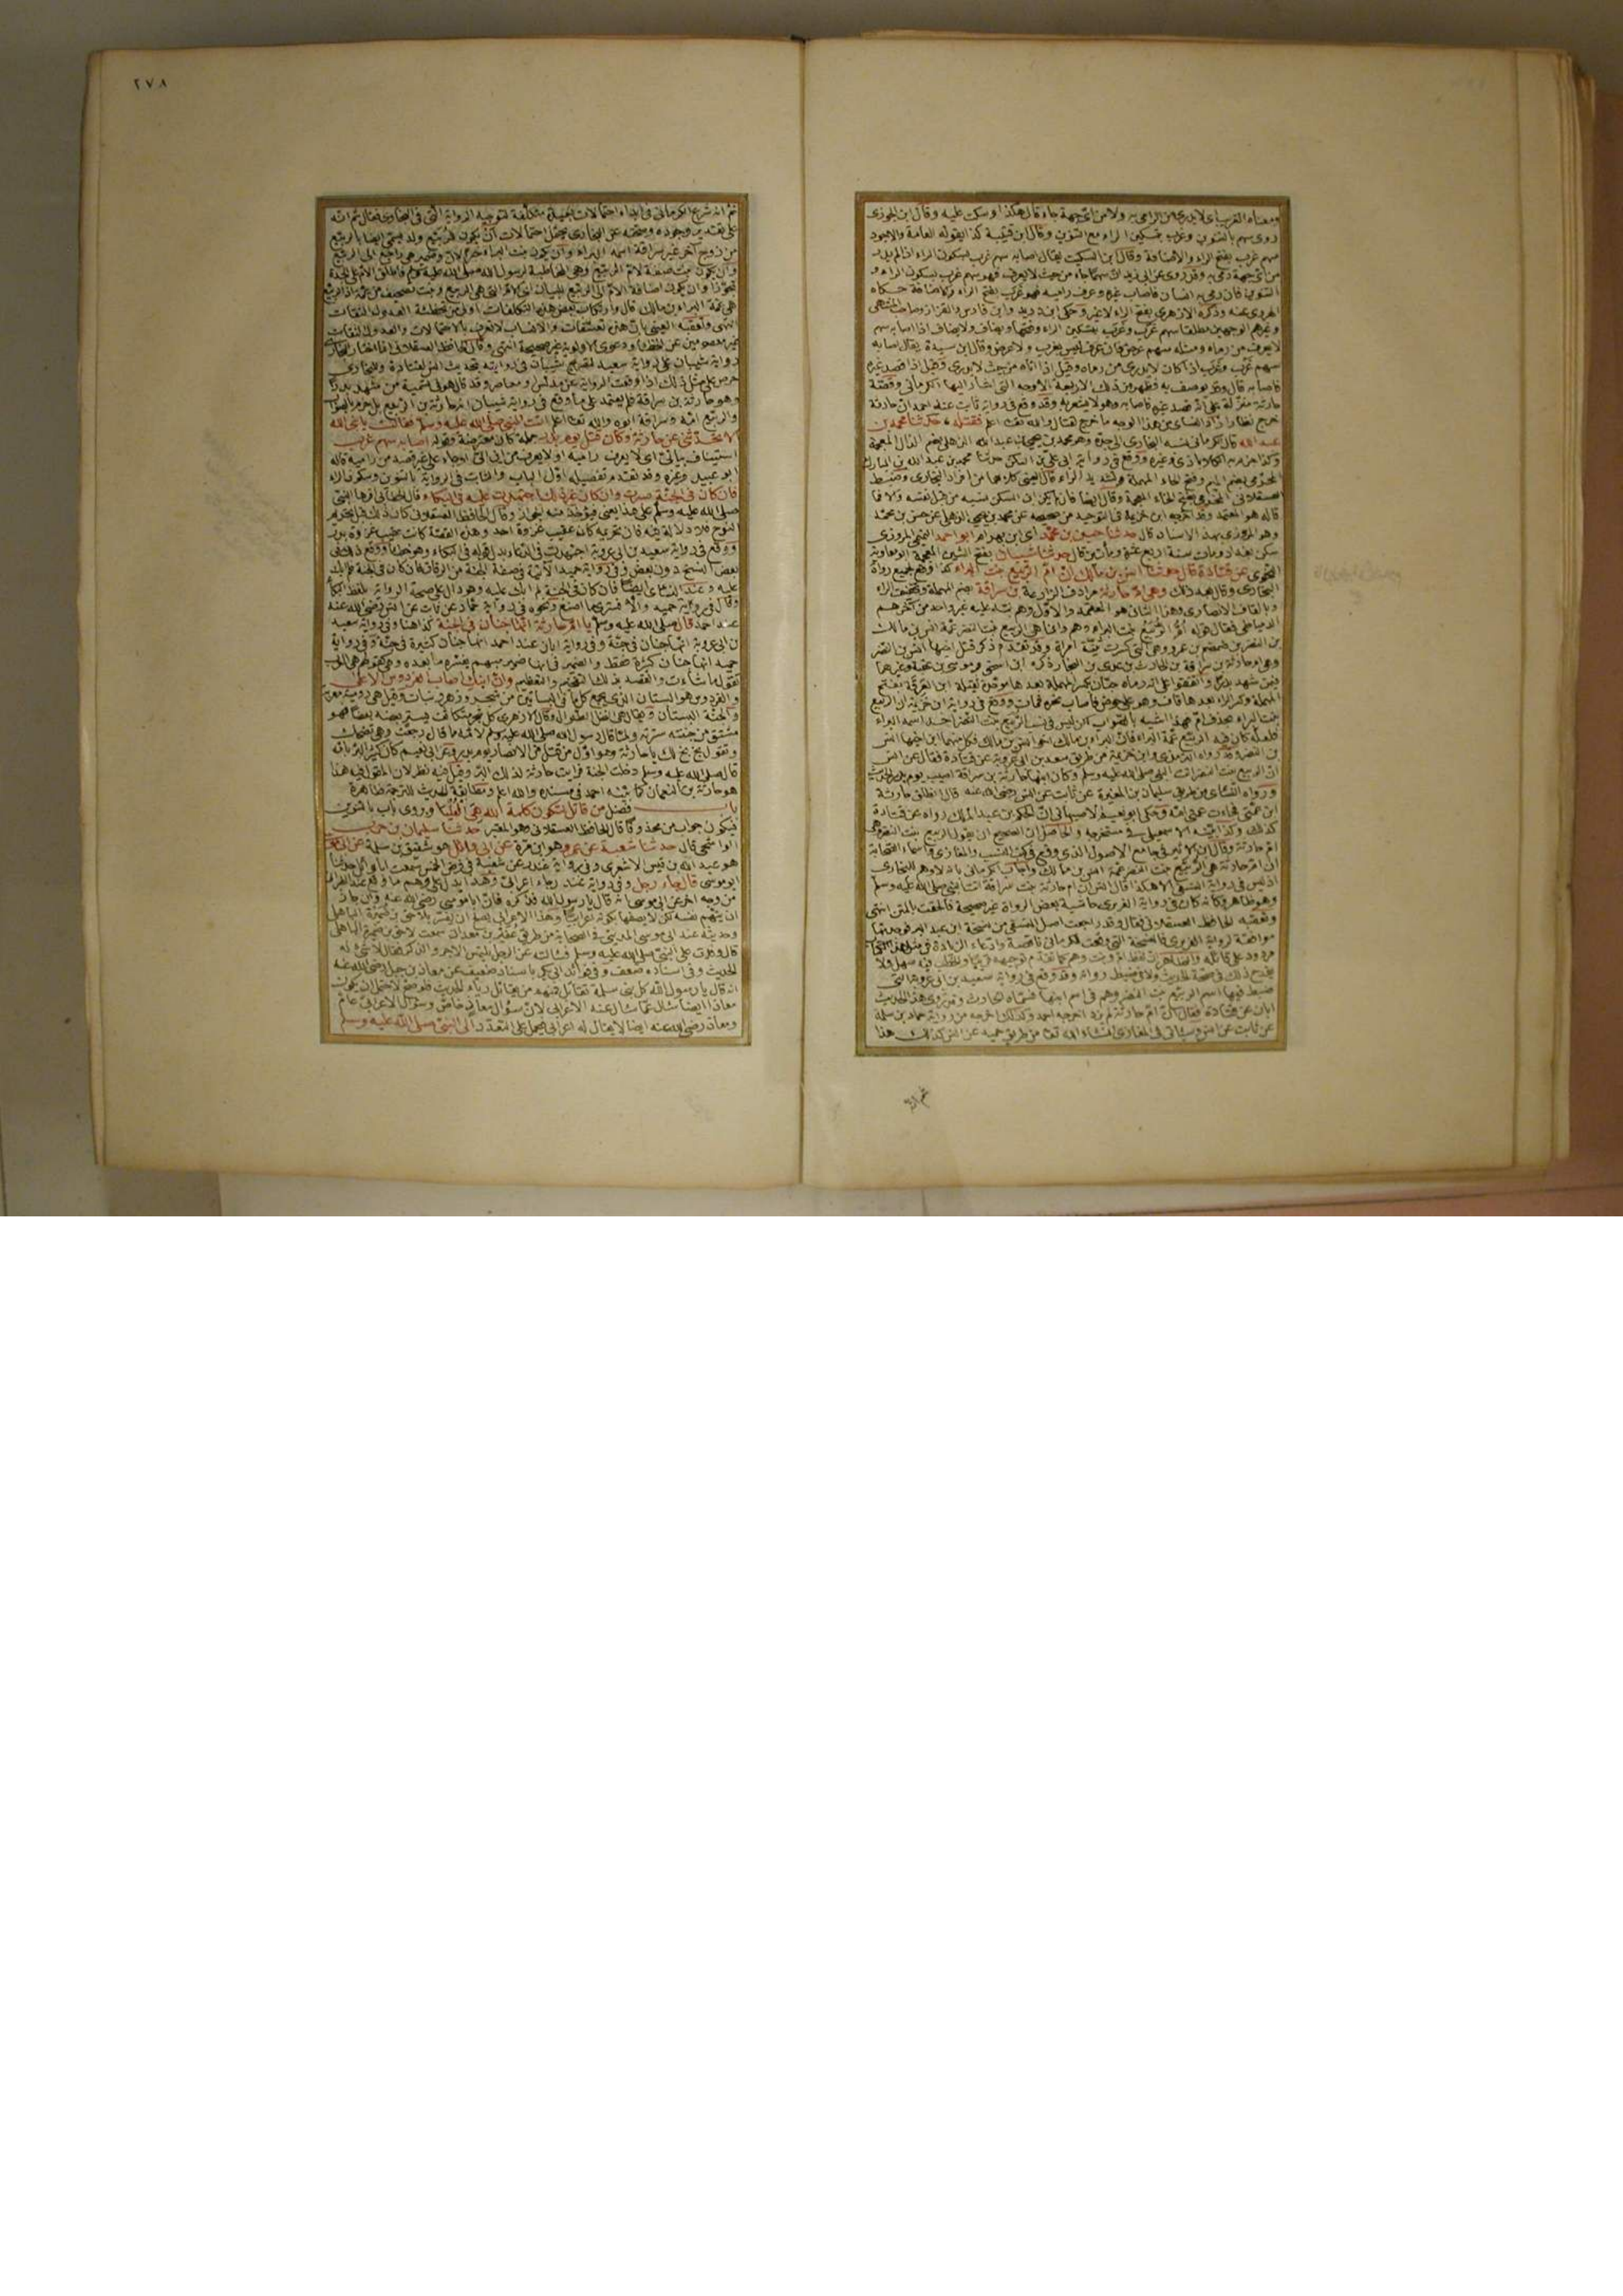 ومعناه الغريب اى لا يدرى من الرامى به ولا من اى جهة جاء قال هكذا وسكت عليه وقال ابن الجوزى
روى سهم بالتنوين وغرب بتسكين الراء مع التنوين وقال ابن قتيبة كذا يقوله العامة والاجود
سهم غرب بفتح الراء والاضافة وقال ابن السكيت يقال اصابه سهم غرب بسكون الراء اذا لم يدر
من اى جهة رمى به وقد روى عن ابى زيد ان سهما جاء من حيث لا يعرف فهو سهم غرب بسكون الراء و
التنوين فان رمى به انسان فاصاب غيره وعرف راميه فهو غرب بفتح الراء والاضافة حكاه
الهروى عنه وذكره الازهرى بفتح الراء لا غير وحكى ابن دريد وابن فارس والقزاز وصاحب المنتهى
وغيرهم الوجهين مطلقا سهم غرب وغرب بتسكين الراء وفتحها ويضاف ولا يضاف اذا اصابه سهم
لا يعرف من رماه ومثله سهم عرض فان عرف فليس بغرب ولا عرض وقال ابن سيدة يقال اصابه
سهم غرب وغرب اذا كان لا يدرى من رماه وقيل اذا اتاه من حيث لا يدرى وقيل اذا قصد غيره
فاصابه قال وقد يوصف به فظهر من ذلك الاربعة الاوجه التى اشار اليها الكرمانى وقصة
حارثة منزلة على انه قصد غيره فاصابه وهو لا يشعر به وقد وقع فى رواية ثابت عند احمد ان حارثة
خرج نظارا زاد النسائى من هذا الوجه ما خرج لقتال والله تعالى اعلم فقتله، حدثنا محمد بن
عبد الله قال الكرمانى نسبه البخارى الى جده وهو محمد بن يحيى بن عبد الله الذهلى بضم الذال المعجمة
وكذا جزم به الكلاباذى وغيره ووقع فى رواية ابى على بن السكن حدثنا محمد بن عبد الله بن المبارك
المخرمى بضم الميم وفتح الخاء المعجمة وتشديد الراء
قاله هو المعتمد وقد اخرجه ابن خزيمة فى التوحيد من صحيحه عن محمد بن يحيى الذهلى عن حسين بن محمد
وهو المروزى بهذا الاسناد قال حدثنا حسين بن محمد اى ابن بهرام ابو احمد التميمى المروزى
سكن بغداد ومات سنة اربع عشرة ومأتين قال حدثنا شيبان بفتح الشين المعجمة ابو معاوية
النحوى عن قتادة قال حدثنا انس بن مالك ان ام الربيع بنت البراء كذا وقع لجميع رواة
البخارى وقال بعد ذلك وهى ام حارثة بن سراقة بضم المهملة وتخفيف الراء
وبالقاف الانصارى وهذا الثانى هو المعتمد والاول وهم نبه عليه غير واحد من آخرهم
الدمياطى فقال قوله ام الربيع بنت البراء وهم وانما هى الربيع بنت النضر عمة انس بن مالك
بن النضر بن ضمضم بن عمرو وهى التى كسرت ثنية امرأة وقد تقدم ذكر قتل اخيها انس بن النضر
وهى ام حارثة بن سراقة بن الحارث بن عدى بن النجار ذكره ابن اسحق وموسى بن عقبة وغيرهما
فيمن شهد بدرا واتفقوا على انه رماه حبان بكسر المهملة بعدها موحدة ثقيلة ابن العرقة بفتح
المهملة وكسر الراء بعدها قاف وهو على حوض فاصاب نحره فمات ووقع فى رواية ابن خزيمة ان الربيع
بنت البراء بحذف ام فهذا اشبه بالصواب لكن ليس فى نسب الربيع بنت النضر احد اسمه البراء
فلعله كان فيه الربيع عمة البراء فان البراء بن مالك اخو انس بن مالك فكل منهما ابن اخيها انس
بن النضر وقد رواه الترمذى وابن خزيمة من طريق سعيد بن ابى عروبة عن قتادة فقال عن انس
ان الربيع بنت النضر اتت النبى صلى الله عليه وسلم وكان ابنها حارثة بن سراقة اصيب يوم بدر الحديث
ورواه النسائى من طريق سليمان بن المغيرة عن ثابت عن انس رضى الله عنه قال انطلق حارثة
ابن عمتى فجاءت عمتى امه وحكى ابو نعيم الاصبهانى ان الحكم بن عبد الملك رواه عن قتادة
كذلك
ام حارثة وقال ابن الاثير فى جامع الاصول الذى وقع فى كتب النسب والمغازى واسماء الصحابة
ان ام حارثة هى الربيع بنت النضر عمة انس بن مالك واجاب الكرمانى بانه لا وهم للبخارى
اذ ليس فى رواية النسفى الا هكذا قال انس ان ام حارثة بن سراقة اتت النبى صلى الله عليه وسلم
وهو ظاهر وكانه كان فى رواية الفربرى حاشية لبعض الرواة غير صحيحة فالحقت بالمتن انتهى
وتعقبه الحافظ العسقلانى فقال وقد راجعت اصل النسفى من نسخة ابن عبد البر فوجدتها
موافقة لرواية الفربرى فالنسخة التى وقعت للكرمانى ناقصة وادعاء الزيادة فى مثل هذا الكتاب
مردود على قائله والظاهر ان لفظ ام وبنت وهم كما تقدم توجيهه قريبا والخطب فيه سهل ولا
يقدح ذلك فى صحة الحديث ولا فى ضبط رواته وقد وقع فى رواية سعيد بن ابى عروبة التى
ضبط فيها اسم الربيع بنت النضر وهم فى اسم ابنها فسماه الحارث وقد روى هذا الحديث
ابان عن قتادة فقال ان ام حارثة لم يزد اخرجه احمد وكذلك اخرجه من رواية حماد بن سلمة
عن ثابت عن انس وسيأتى فى المغازى ان شاء الله تعالى من طريق حميد عن انس كذلك هذا
٢٧٨
ثم انه شرع الكرمانى فى ابداء احتمالات بعيدة متكلفة لتوجيه الرواية التى فى البخارى فقال ثم انه
على تقدير وجوده وصحته عن البخارى يحتمل احتمالات ان يكون للربيع ولد يسمى ايضا بالربيع
من زوج آخر غير سراقة اسمه البراء وان يكون بنت البراء خبرا لان وضمير هى راجع الى الربيع
وان يكون بنت صفة لام الربيع وهى المخاطبة لرسول الله صلى الله عليه وسلم فاطلق الام على الجدة
تجوزا وان يكون اضافة الام الى الربيع للبيان اى الام التى هى الربيع وبنت تصحيف من عمة اذ الربيع
هى عمة البراء بن مالك قال وارتكاب بعض هذه التكلفات اولى من تخطئة العدول الثقات
انتهى وتعقبه العينى بان هذه تعسفات والانساب لا تعرف بالاحتمالات والعدول الثقات
غير معصومين عن الخطأ ودعوى الاولوية غير صحيحة انتهى وقال الحافظ العسقلانى انما اختار البخارى
رواية شيبان على رواية سعيد لتصريح شيبان فى روايته بتحديث انس لقتادة وللبخارى
حرص على مثل ذلك اذا وقعت الرواية عن مدلس او معاصر وقد قال هو فى تسمية من شهد بدرا
وهو حارثة بن سراقة فلم يعتمد على ما وقع فى رواية شيبان انه حارثة بن الربيع بل جزم بالصواب
والربيع امه وسراقة ابوه والله تعالى اعلم اتت النبى صلى الله عليه وسلم فقالت يا نبى الله
الا تحدثنى عن حارثة وكان قتل يوم بدر جملة كان معترضة وقوله اصابه سهم غرب
استيناف بيانى اى لا يعرف راميه او لا يعرف من اين اتى او جاء على غير قصد من راميه قاله
ابو عبيد وغيره وقد تقدم تفصيله اول الباب والثابت فى الرواية بالتنوين وسكون الراء
فان كان فى الجنة صبرت وان كان غير ذلك اجتهدت عليه فى البكاء وقال الخطابى اقرها النبى
صلى الله عليه وسلم على هذا يعنى فيؤخذ منه الجواز وقال الحافظ العسقلانى كان ذلك قبل تحريم
النوح فلا دلالة فيه فان تحريمه كان عقيب غزوة احد وهذه القصة كانت عقيب غزوة بدر
ووقع فى رواية سعيد بن ابى عروبة اجتهدت فى الدعاء بدل قوله فى البكاء وهو خطأ ووقع ذلك فى
بعض النسخ دون بعض وفى رواية حميد الآتية فى صفة الجنة من الرقاق فان كان فى الجنة فلم ابك
عليه وعند النسائى ايضا فان كان فى الجنة لم ابك عليه وهو دال على صحة الرواية بلفظ البكاء
وقال فى رواية حميد والا فسترى ما اصنع ونحوه فى رواية حماد عن ثابت عن انس رضى الله عنه
عند احمد قال صلى الله عليه وسلم يا ام حارثة انها جنان فى الجنة كذا هنا وفى رواية سعيد
بن ابى عروبة انها جنان فى جنة وفى رواية ابان عند احمد انها جنان كثيرة فى جنة وفى رواية
حميد انها جنان كثيرة فقط والضمير فى انها ضمير مبهم يفسره ما بعده وهو كقولهم هى العرب
تقول ما شاءت والقصد بذلك التفخيم والتعظيم وان ابنك اصاب الفردوس الاعلى
والفردوس هو البستان الذى يجمع كل ما فى البساتين من شجر وزهر ونبات وقيل هى رومية معربة
والجنة البستان ويقال هى النخل الطوال وقال الازهرى كل شجر متكاثف يستر بعضه بعضا فهو
مشتق من جننته سترته ولما قال رسول الله صلى الله عليه وسلم لامه ما قال رجعت وهى تضحك
وتقول بخ بخ لك يا حارثة وهو اول من قتل من الانصار يوم بدر وعن ابى نعيم كان كثير البر بامه
قال صلى الله عليه وسلم دخلت الجنة فرايت حارثة لذلك البر وقيل فيه نظر لان المقول فيه هذا
هو حارثة بن النعمان كما بينه احمد فى مسنده والله اعلم ومطابقة الحديث للترجمة ظاهرة
باب فضل من قاتل لتكون كلمة الله هى العليا وروى باب بالتنوين
فيكون جواب من محذوفا قال الحافظ العسقلانى وهو المعتبر حدثنا سليمان بن حرب
الواشحى قال حدثنا شعبة عن عمرو هو ابن مرة عن ابى وائل هو شقيق بن سلمة عن ابى موسى
هو عبد الله بن قيس الاشعرى وفى رواية غندر عن شعبة فى فرض الخمس سمعت ابا وائل حدثنا
ابو موسى قال جاء رجل وفى رواية غندر رجاء اعرابى وهذا يدل على وهم ما وقع عند الطبرانى
من وجه آخر عن ابى موسى انه قال يا رسول الله فذكره فان ابا موسى رضى الله عنه وان جاز
ان يبهم نفسه لكن لا يصفها بكونه اعرابيا وهذا الاعرابى يصلح ان يفسر بلاحق بن ضميرة الباهلى
وحديثه عند ابى موسى المدينى فى الصحابة من طريق عفير بن معدان سمعت لاحق بن ضميرة الباهلى
قال وفدت على النبى صلى الله عليه وسلم فسألته عن الرجل يلتمس الاجر والذكر فقال لا شىء له
الحديث وفى اسناده ضعف وفى فوائد ابى بكر باسناد ضعيف عن معاذ بن جبل رضى الله عنه
انه قال يا رسول الله كل بنى سلمة تقاتل فمنهم من يقاتل رياء الحديث فلو صح لاحتمل ان يكون
معاذا ايضا سأل عما سأل عنه الاعرابى لان سؤال معاذ خاص وسؤال الاعرابى عام
ومعاذ رضى الله عنه ايضا لا يقال له اعرابى فيحمل على التعدد الى النبى صلى الله عليه وسلم